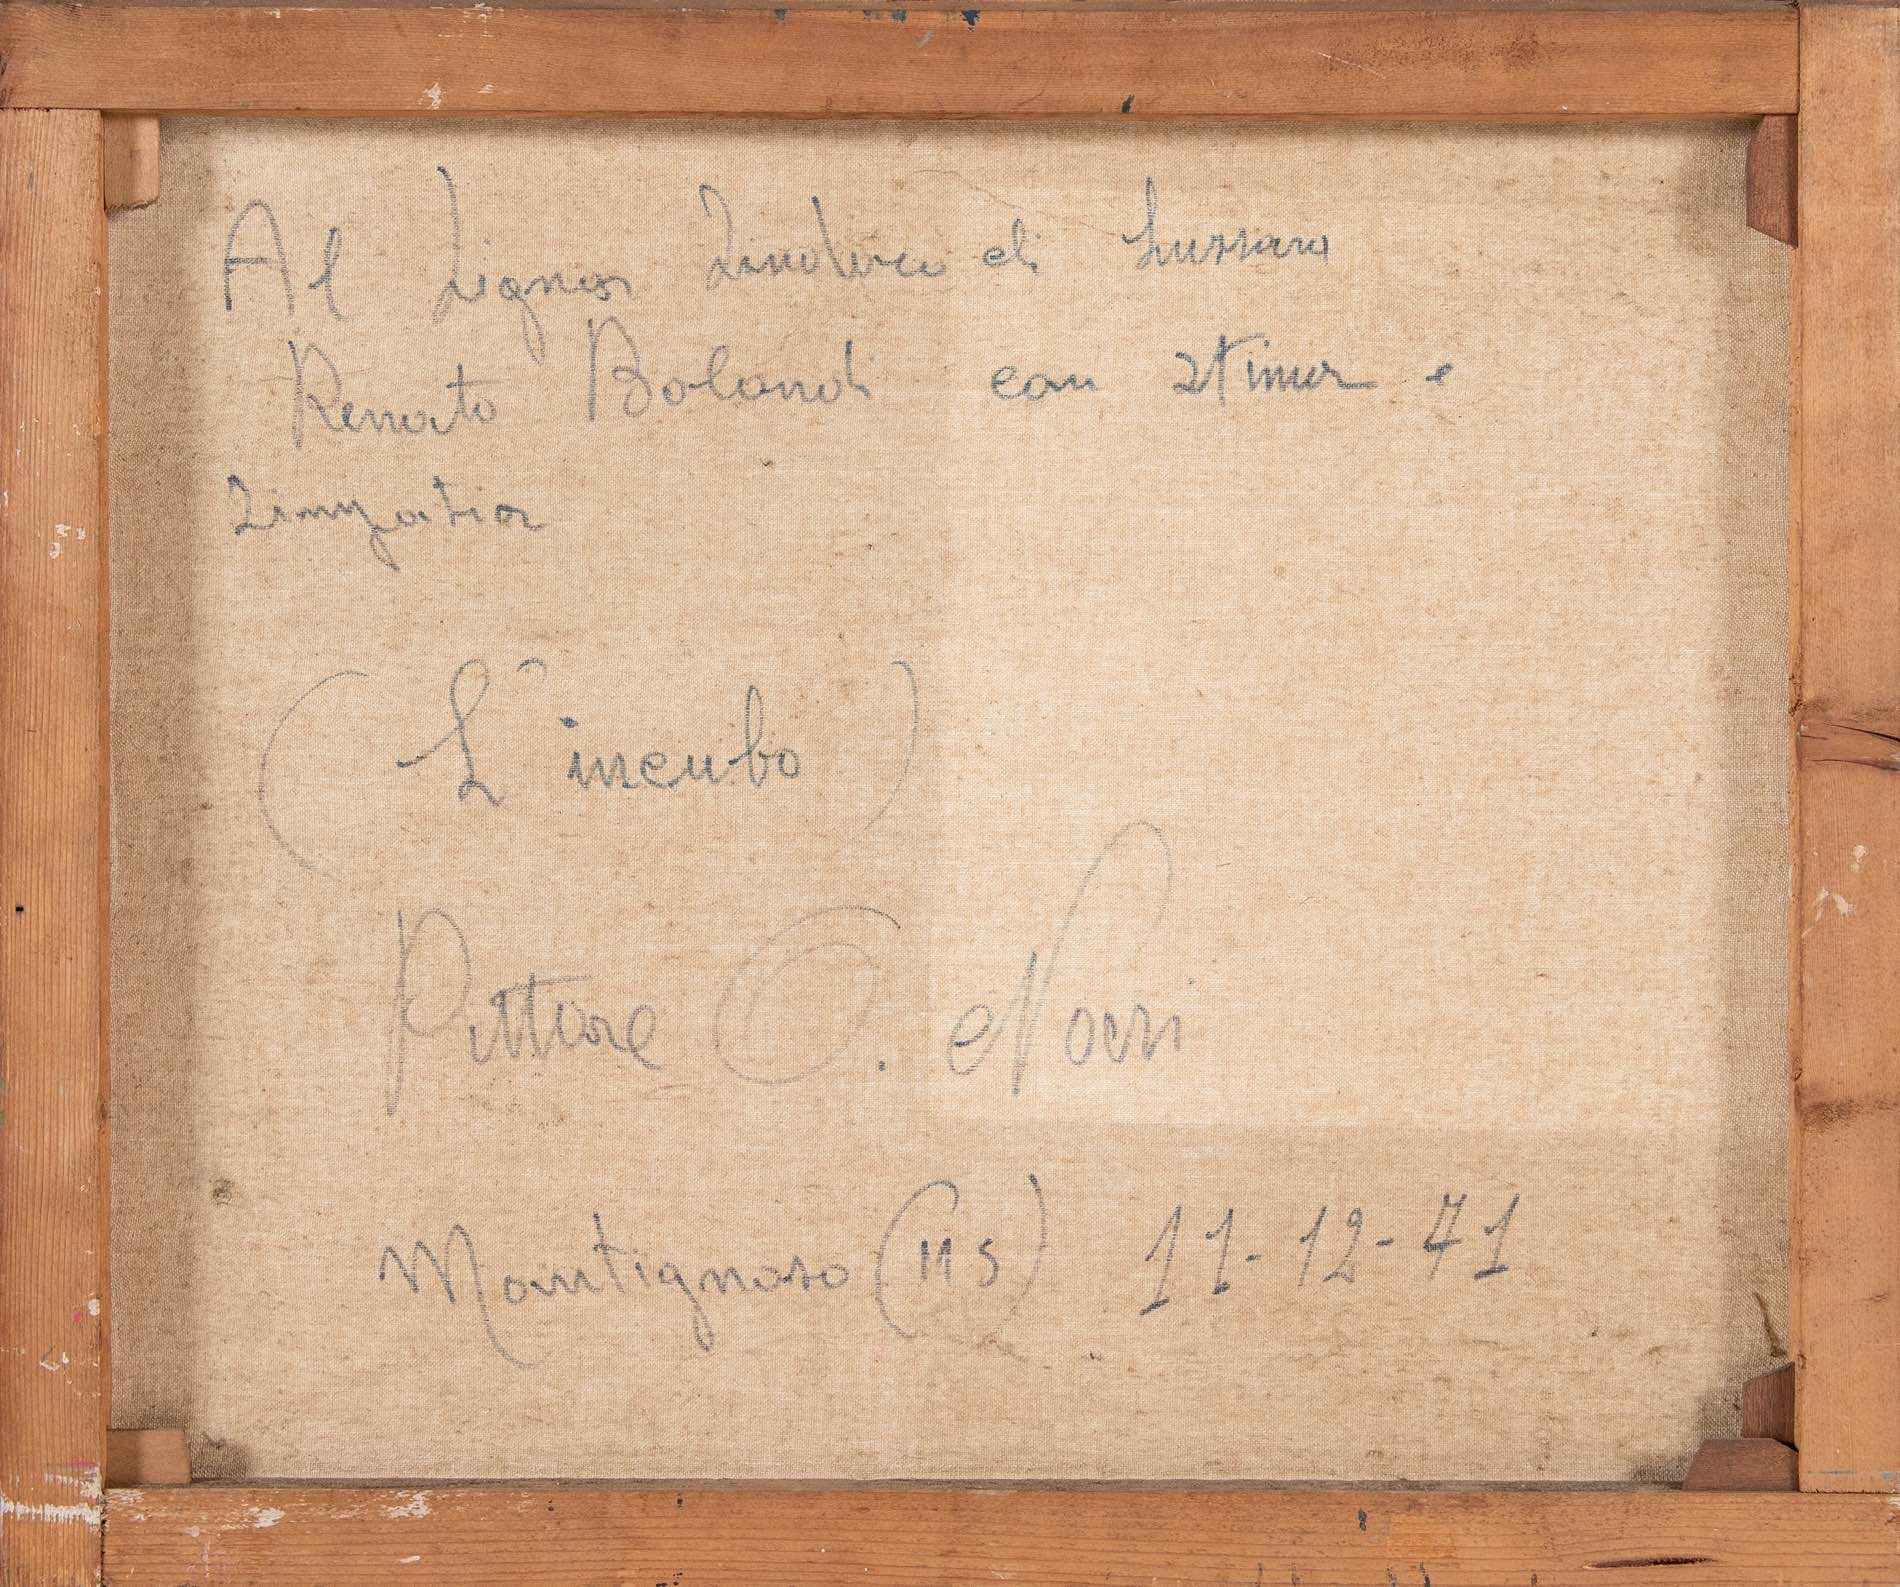 Al Signor Sindaco di Luzzara
Renato Bolondi con stima e
simpatia
(L'incubo)
Pittore O. Nocri
Montignoso (MS) 11-12-71